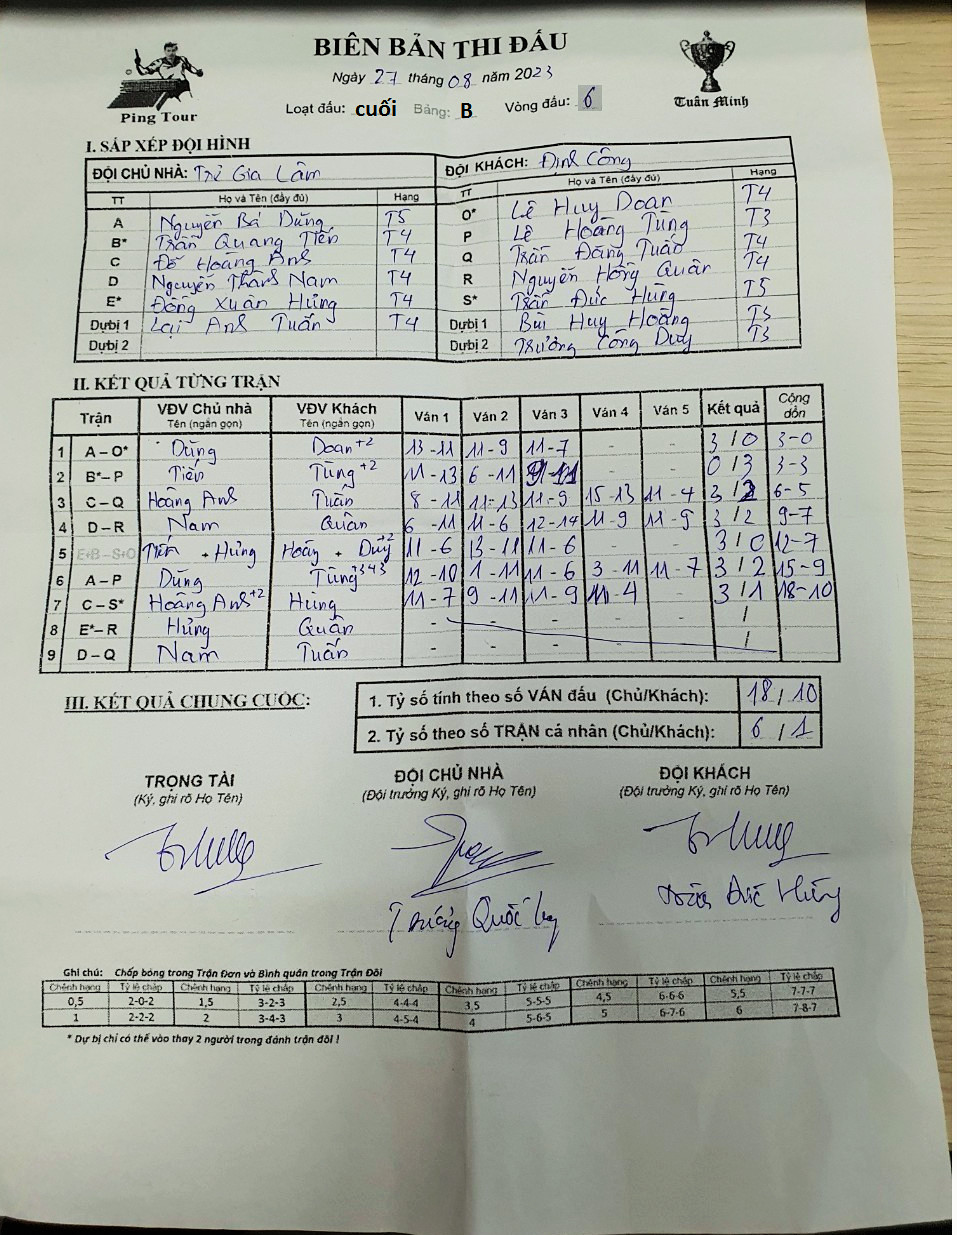 BIÊN BẢN THI ĐẤU
Ngày 27 tháng 08 năm 2023
Loạt đấu: cuối Bảng: B Vòng đấu: 6
Ping Tour
Tuấn Minh
I. SẮP XẾP ĐỘI HÌNH
ĐỘI CHỦ NHÀ: Trẻ Gia Lâm ĐỘI KHÁCH: Định Công
TT Họ và Tên (đầy đủ) Hạng TT Họ và Tên (đầy đủ) Hạng
A Nguyễn Bá Dũng T5 O* Lê Huy Doan T4
B* Trần Quang Tiến T4 P Lê Hoàng Tùng T3
C Đỗ Hoàng Anh T4 Q Trần Đăng Tuấn T4
D Nguyễn Thành Nam T4 R Nguyễn Hồng Quân T4
E* Đồng Xuân Hưng T4 S* Trần Đức Hùng T5
Dự bị 1 Lại Anh Tuấn T4 Dự bị 1 Bùi Huy Hoàng T3
Dự bị 2 Dự bị 2 Trương Công Duy T3
II. KẾT QUẢ TỪNG TRẬN
Trận VĐV Chủ nhà Tên (ngắn gọn) VĐV Khách Tên (ngắn gọn) Ván 1 Ván 2 Ván 3 Ván 4 Ván 5 Kết quả Cộng dồn
1 A – O* Dũng Doan+2 13-11 11-9 11-7 - - 3/0 3-0
2 B*– P Tiến Tùng+2 11-13 6-11 9-11 - - 0/3 3-3
3 C – Q Hoàng Anh Tuấn 8-11 11-13 11-9 15-13 11-4 3/2 6-5
4 D – R Nam Quân 6-11 11-6 12-14 11-9 11-9 3/2 9-7
5 E+B – S+O Tiến + Hưng Hoàng + Duy+2 11-6 13-11 11-6 3/0 12-7
6 A – P Dũng Tùng+343 12-10 1-11 11-6 3-11 11-7 3/2 15-9
7 C – S* Hoàng Anh+2 Hùng 11-7 9-11 11-9 11-4 - 3/1 18-10
8 E*– R Hưng Quân - - - - - /
9 D – Q Nam Tuấn - - - - - /
III. KẾT QUẢ CHUNG CUỘC:
1. Tỷ số tính theo số VÁN đấu (Chủ/Khách): 18/10
2. Tỷ số theo số TRẬN cá nhân (Chủ/Khách): 6/1
TRỌNG TÀI ĐỘI CHỦ NHÀ ĐỘI KHÁCH
(Ký, ghi rõ Họ Tên) (Đội trưởng Ký, ghi rõ Họ Tên) (Đội trưởng Ký, ghi rõ Họ Tên)
Trương Quốc Trần Đức Hùng
Ghi chú: Chấp bóng trong Trận Đơn và Bình quân trong Trận Đôi
Chênh hạng Tỷ lệ chấp Chênh hạng Tỷ lệ chấp Chênh hạng Tỷ lệ chấp Chênh hạng Tỷ lệ chấp Chênh hạng Tỷ lệ chấp Chênh hạng Tỷ lệ chấp
0,5 2-0-2 1,5 3-2-3 2,5 4-4-4 3,5 5-5-5 4,5 6-6-6 5,5 7-7-7
1 2-2-2 2 3-4-3 3 4-5-4 4 5-6-5 5 6-7-6 6 7-8-7
* Dự bị chỉ có thể vào thay 2 người trong đánh trận đôi !